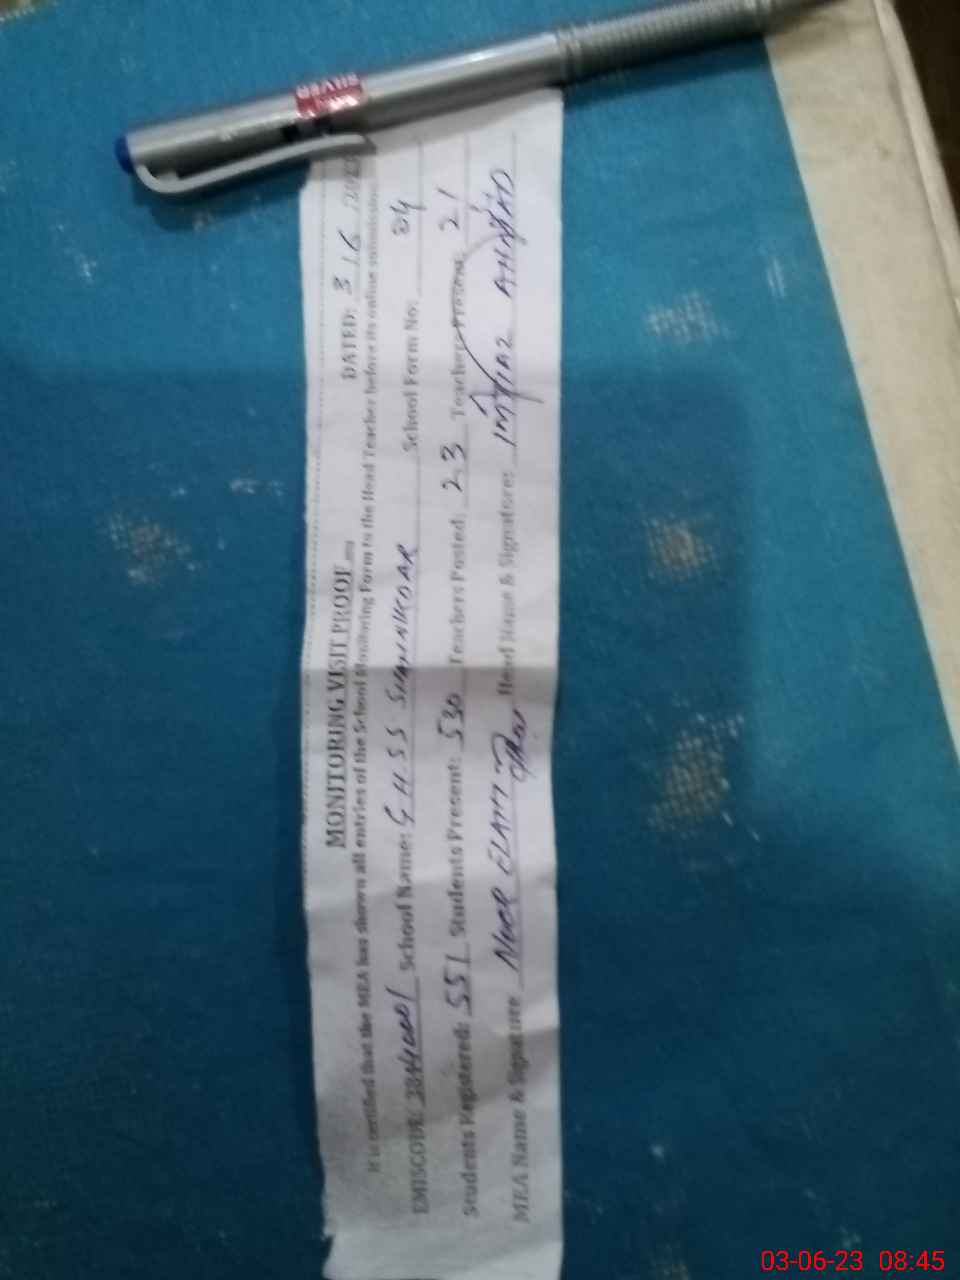 MONITORING VISIT PROOF
DATED: 3/6/202
It is certified that the MEA has shown all entries of the School Monitoring Form to the Head Teacher before its online submission
EMISCODE: School Name: GHSS SHINKDAR School Form No: 04
Students Registered: 551 Students Present: 530 Teachers Posted: 23 Teachers Present: 21
MEA Name & Signature NOOR ELAHI Head Name & Signature: IMTIAZ AHMAD
SILVER
03-06-23 08:45